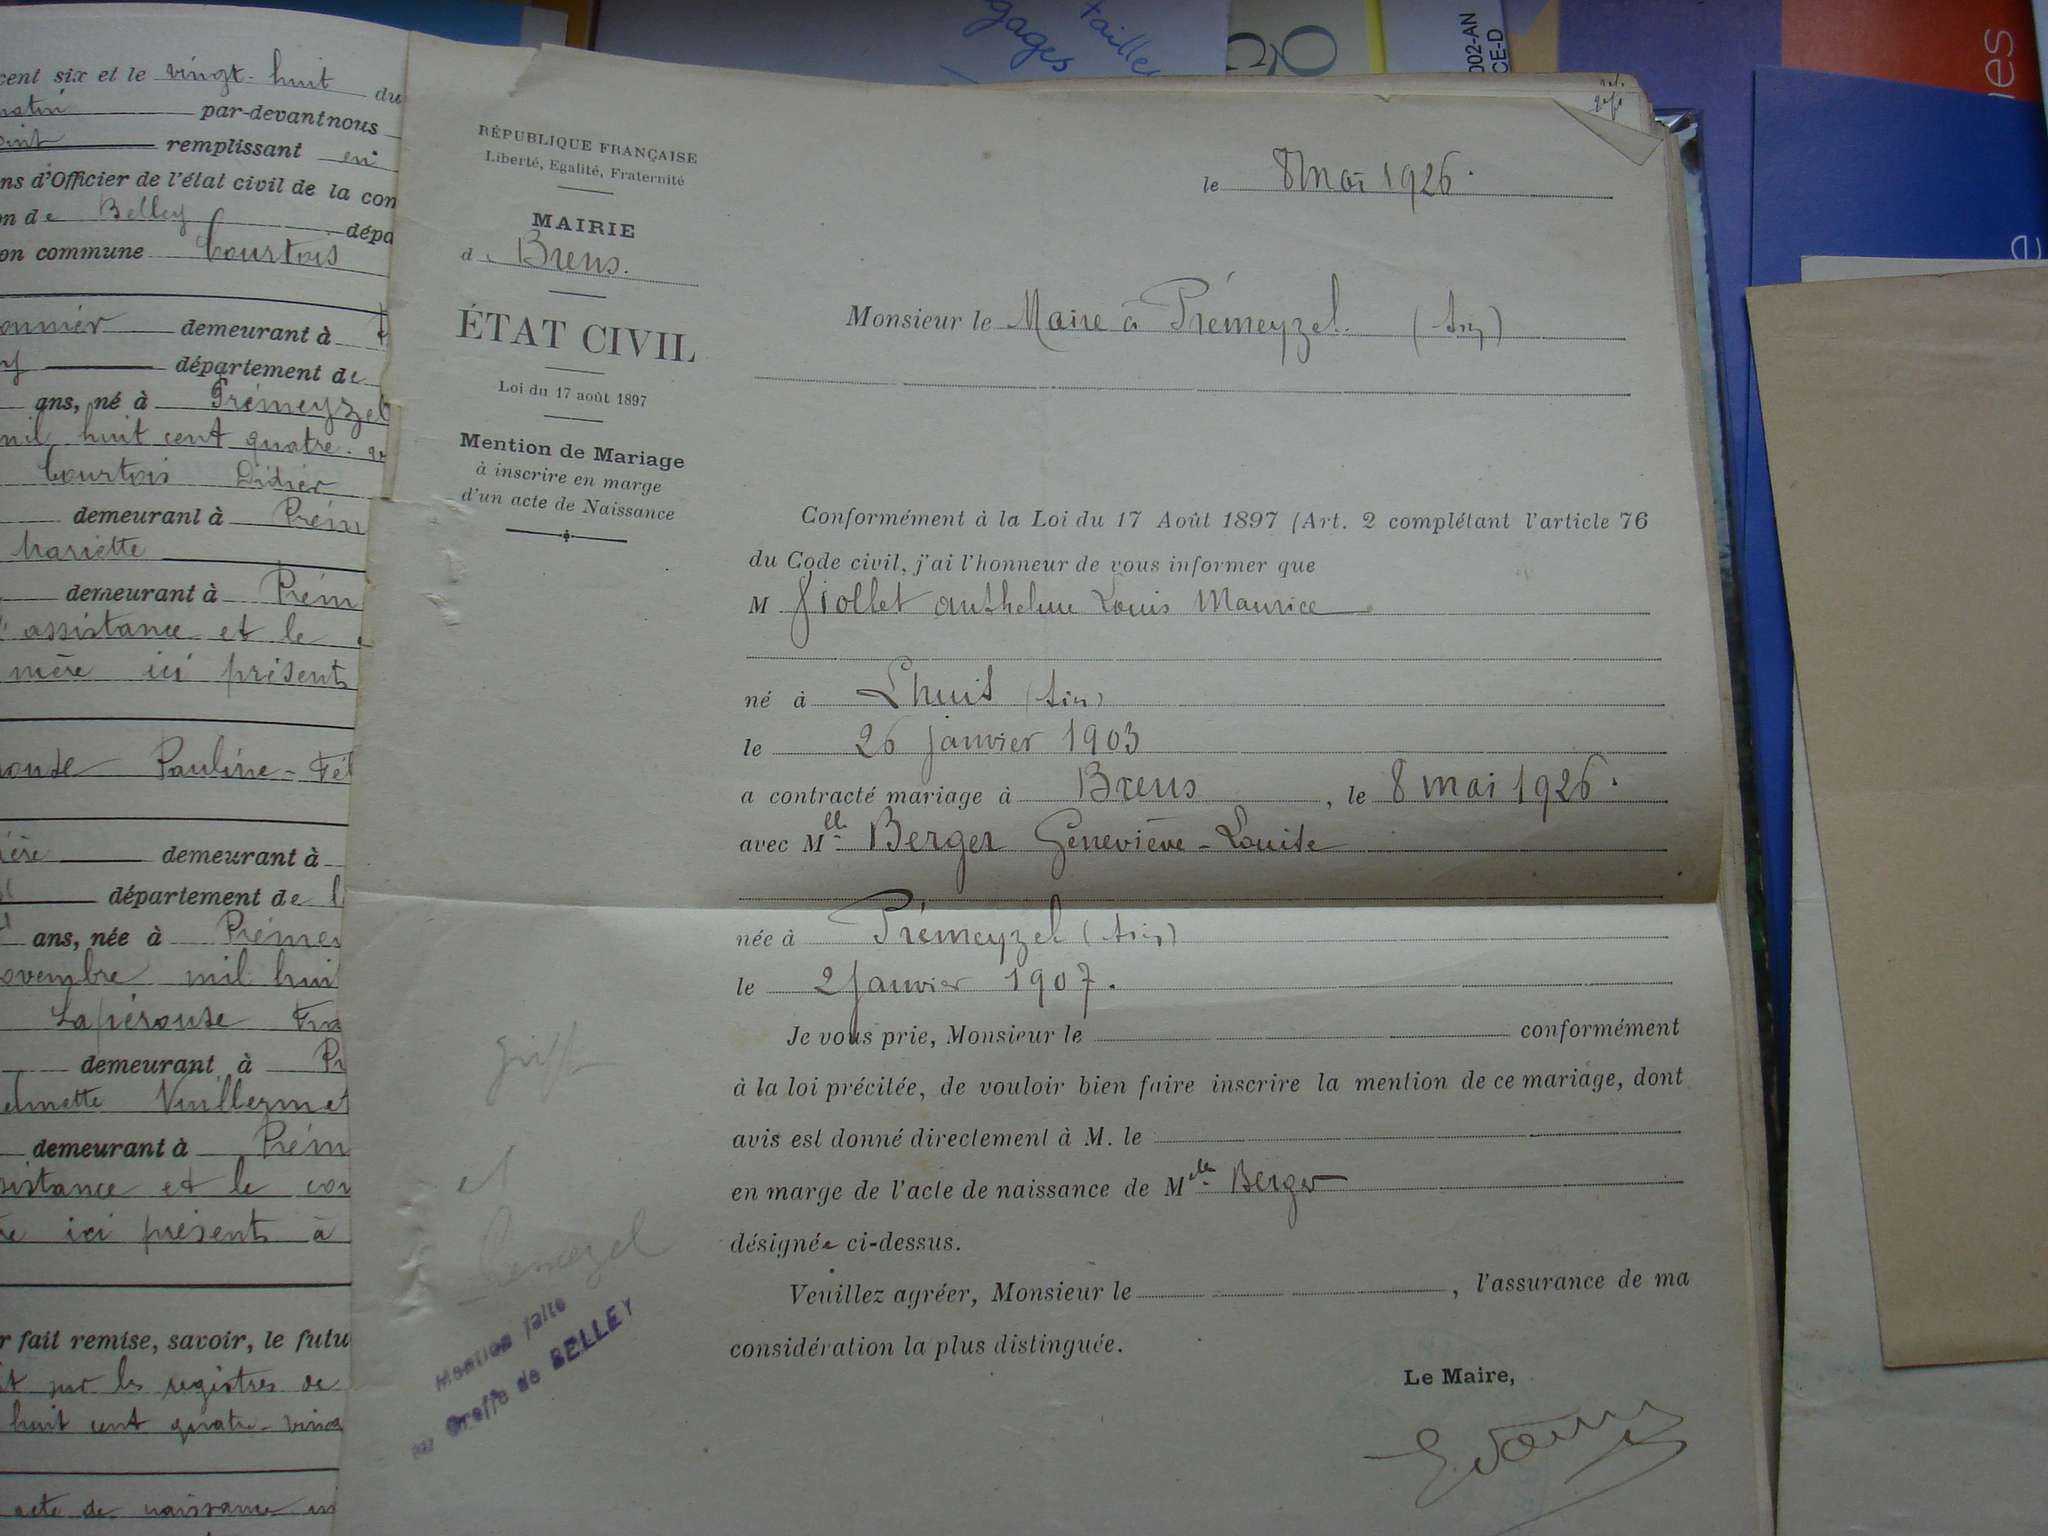 cent six et le vingt-huit du
matin par-devant nous
remplissant en
ns d'Officier de l'état civil de la con
on de Belley dépa
on commune Courtois
onnier demeurant à
département de
ans, né à Prémeyzel
mil huit cent quatre-v
Courtois Didier
demeurant à Prém
Mariette
demeurant à Prém
assistance et le
mère ici présent
Pauline-Fél
ère demeurant à
département de l
ans, née à Prémey
ovembre mil hui
Lapérouse Fra
demeurant à Pr
Vuillermet
demeurant à Prém
sistance et le con
ici présents à
r fait remise, savoir, le futu
it par les registres de
huit cent quatre-ving
acte de naissance
RÉPUBLIQUE FRANÇAISE
Liberté, Egalité, Fraternité
MAIRIE
de Brens.
ÉTAT CIVIL
Loi du 17 août 1897
Mention de Mariage
à inscrire en marge
d'un acte de Naissance
le 8 mai 1926.
Monsieur le Maire à Prémeyzel (Ain)
Conformément à la Loi du 17 Août 1897 (Art. 2 complétant l'article 76
du Code civil, j'ai l'honneur de vous informer que
M Jiollet Anthelme Louis Maurice
né à Lhuis (Ain)
le 26 janvier 1903
a contracté mariage à Brens, le 8 mai 1926.
avec Mlle Berger Geneviève-Louise
née à Prémeyzel (Ain)
le 2 janvier 1907.
Je vous prie, Monsieur le conformément
à la loi précitée, de vouloir bien faire inscrire la mention de ce mariage, dont
avis est donné directement à M. le
en marge de l'acte de naissance de Melle Berger
désignée ci-dessus.
Veuillez agréer, Monsieur le , l'assurance de ma
considération la plus distinguée.
Le Maire,
et
Premeyzel
Mention faite
au Greffe de BELLEY
gages
taille
002-AN
CE-D
nes
e